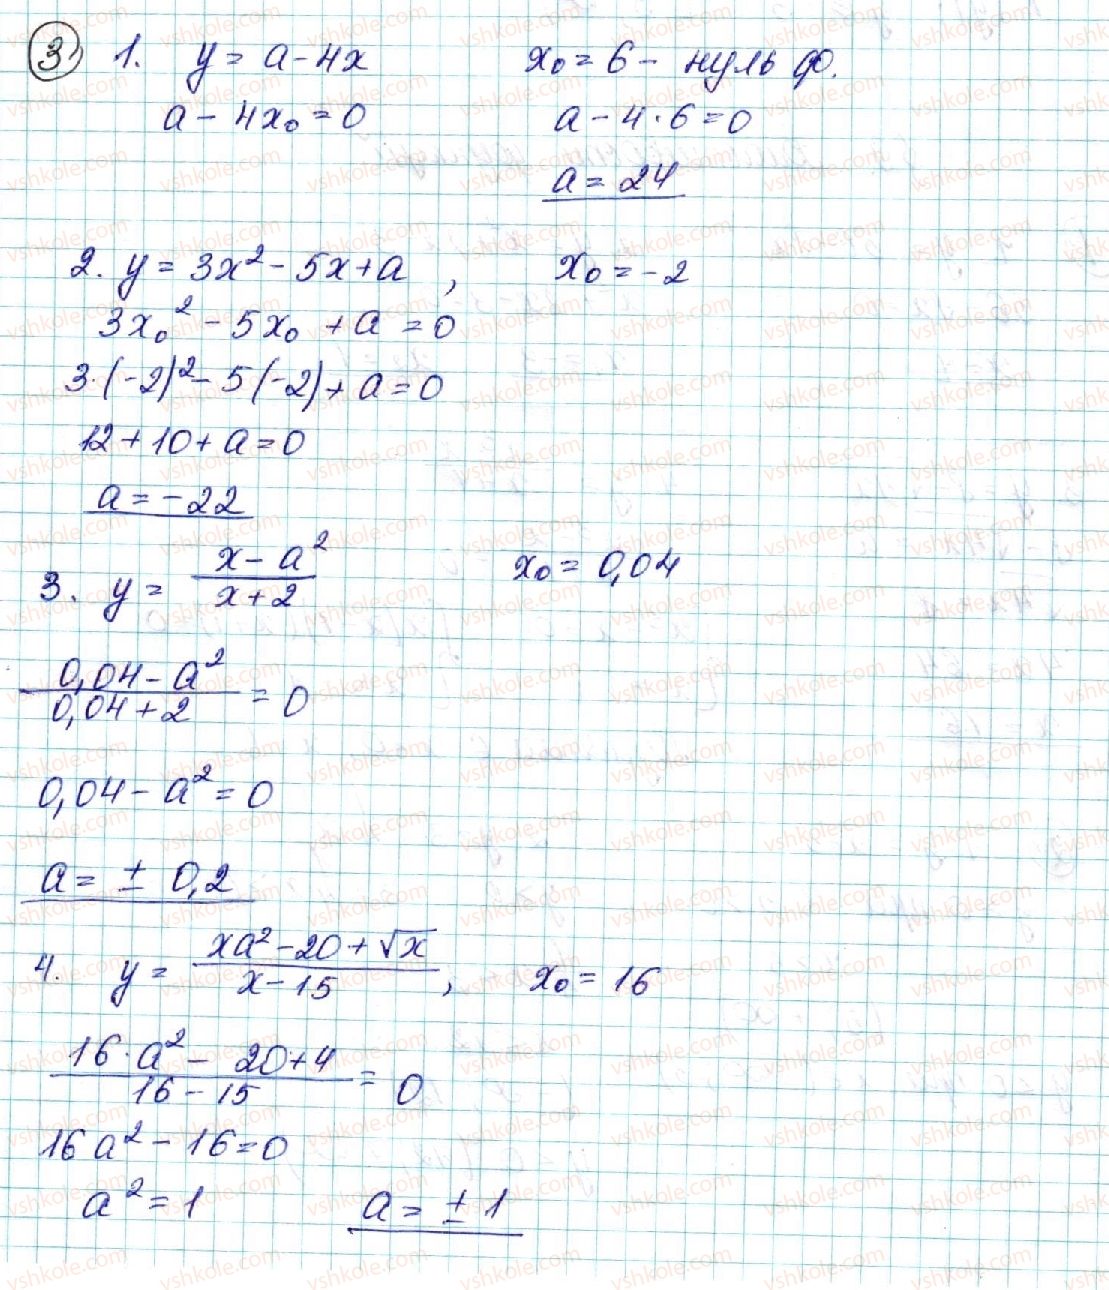 3) 1. y = a - 4x    x₀ = 6 - нуль ф.
a - 4x₀ = 0    a - 4·6 = 0
a = 24
2. y = 3x² - 5x + a ,    x₀ = -2
3x₀² - 5x₀ + a = 0
3·(-2)² - 5(-2) + a = 0
12 + 10 + a = 0
a = -22
3. y = (x - a²)/(x + 2)    x₀ = 0,04
(0,04 - a²)/(0,04 + 2) = 0
0,04 - a² = 0
a = ± 0,2
4. y = (xa² - 20 + √x)/(x - 15) ,    x₀ = 16
(16·a² - 20 + 4)/(16 - 15) = 0
16a² - 16 = 0
a² = 1    a = ± 1
vshkole.com